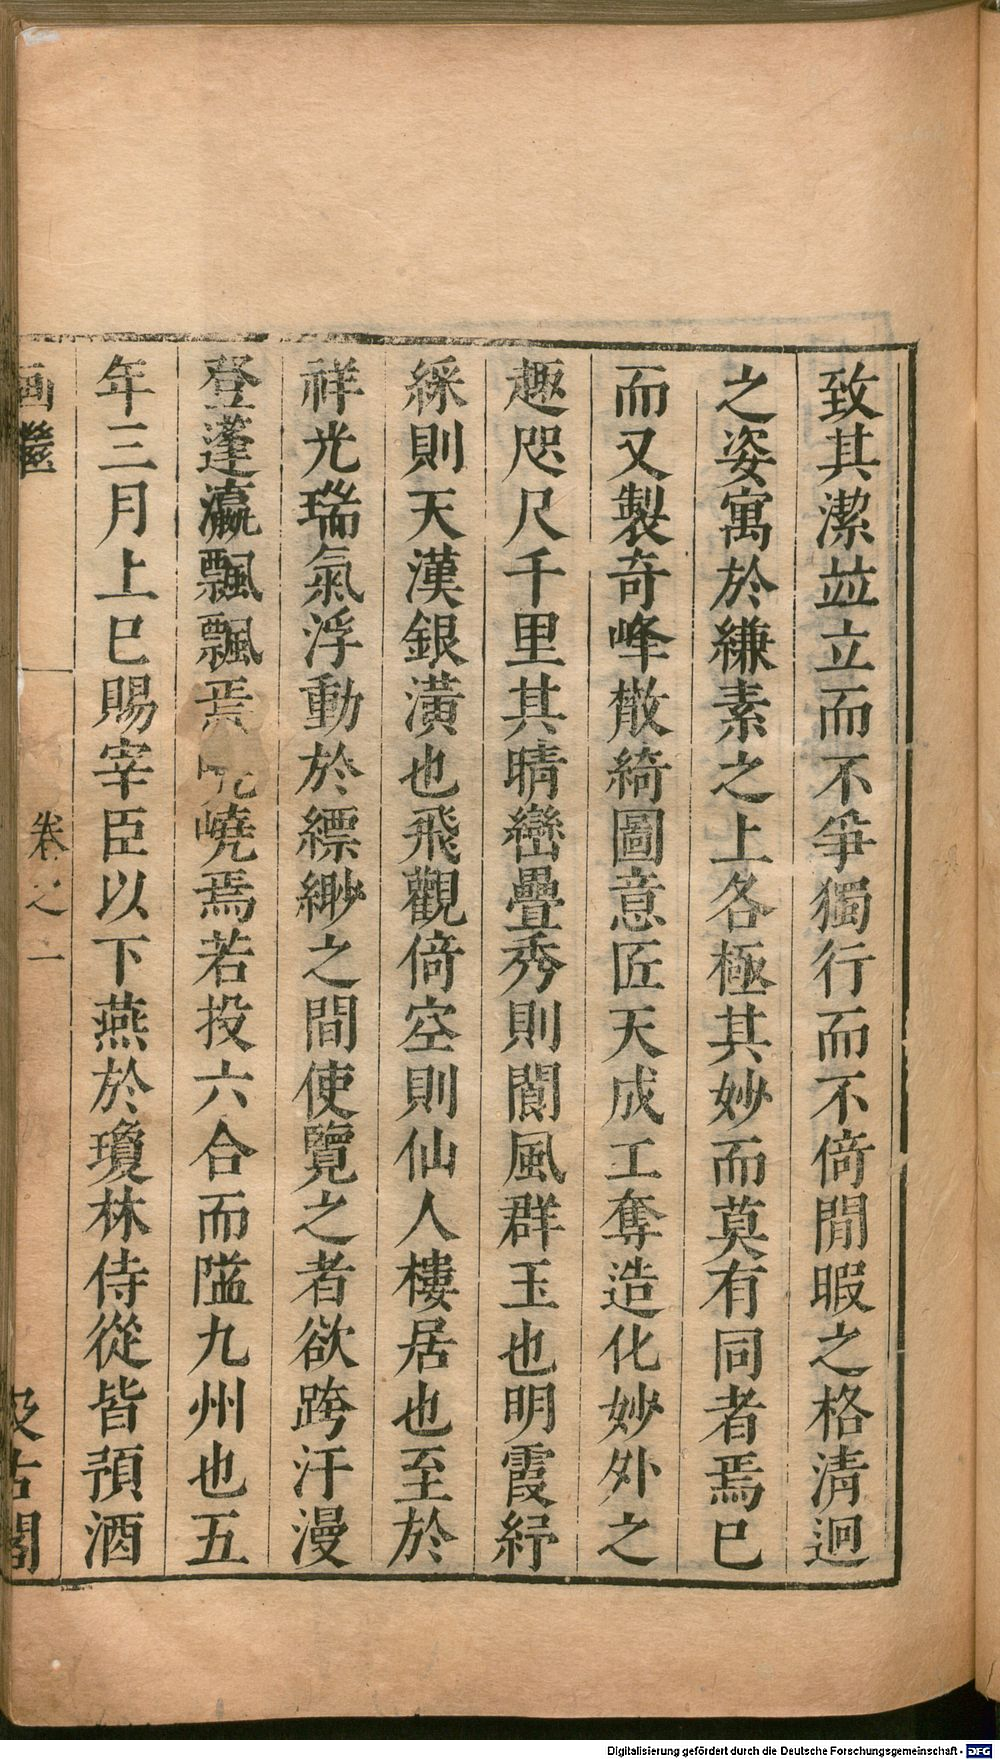 致其潔並立而不爭獨行而不倚閒暇之格淸迥
之姿寓於縑素之上各極其妙而莫有同者焉已
而又製奇峰散綺圖意匠天成工奪造化妙外之
趣咫尺千里其晴巒疊秀則閬風群玉也明霞紓
綵則天漢銀潢也飛觀倚空則仙人樓居也至於
祥光瑞氣浮動於縹緲之間使覽之者欲跨汗漫
登蓬瀛飄飄焉嶢焉若投六合而隘九州也五
年三月上巳賜宰臣以下燕於瓊林侍從皆預酒
画繼 卷之一 汲古閣
Digitalisierung gefördert durch die Deutsche Forschungsgemeinschaft - DFG